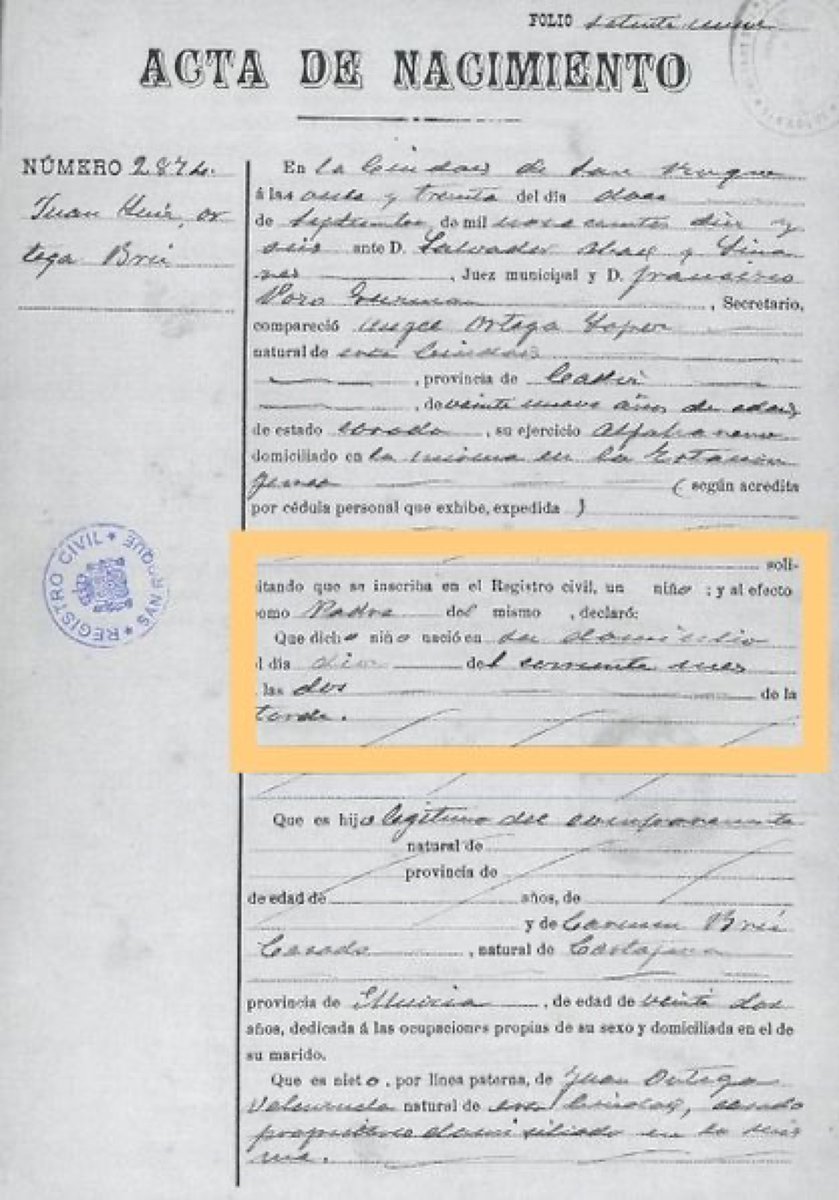 FOLIO setenta nueve
ACTA DE NACIMIENTO
NÚMERO 2874.
Juan Luis, or
tega Brú
En la Ciudad de San Roque
á las once y treinta del día doce
de Septiembre de mil novecientos diez y
seis ante D. Salvador y Lina
res, Juez municipal y D. francisco
Pozo Guzman, Secretario,
compareció Angel Ortega Lopez
natural de esta Ciudad
, provincia de Cadiz
, de veinte nueve años de edad
de estado casado, su ejercicio Alfarero
domiciliado en la misma en la Estacion
ferrea (según acredita
por cédula personal que exhibe, expedida )
soli-
itando que se inscriba en el Registro civil, un niño; y al efecto
omo Padre del mismo, declaró:
Que dicho niño nació en su domicilio
l día diez del corriente mes
las dos de la
tarde.
Que es hijo legitimo del compareciente
natural de
provincia de
de edad de años, de
y de Carmen Brú
Casado, natural de Cartajena
provincia de Murcia, de edad de veinte dos
años, dedicada á las ocupaciones propias de su sexo y domiciliada en el de
su marido.
Que es nieto, por línea paterna, de Juan Ortega
Valenzuela natural de esta Ciudad, casado
propietario domisiliado en la mis
ma.
REGISTRO CIVIL
SAN ROQUE